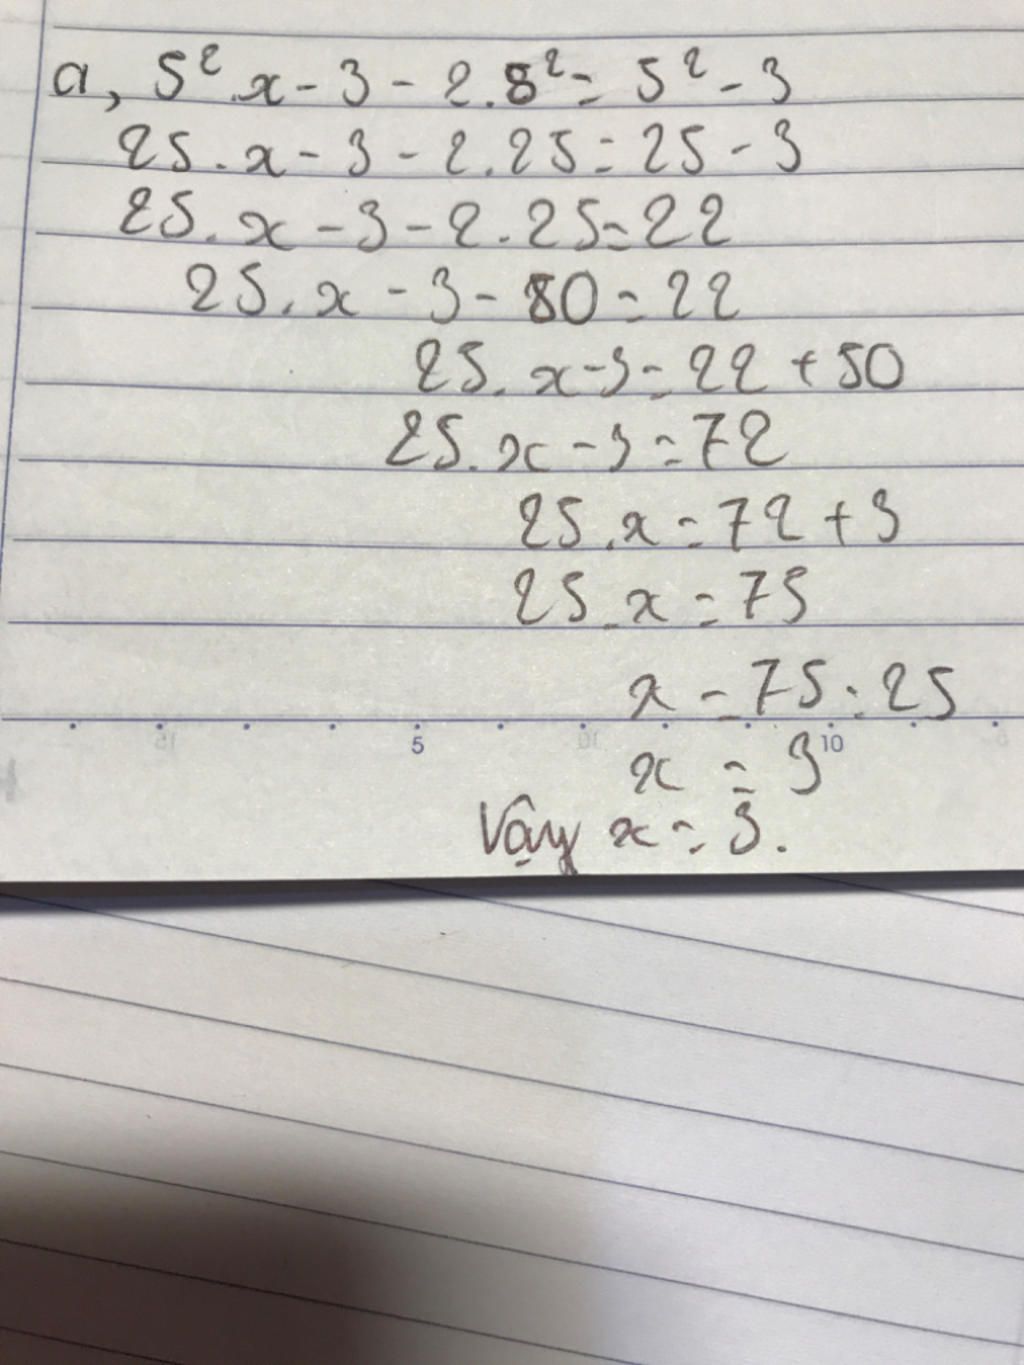 a, 5² . x - 3 - 2.5² = 5² - 3
25 . x - 3 - 2.25 = 25 - 3
25 . x - 3 - 2.25 = 22
25 . x - 3 - 50 = 22
25 . x - 3 = 22 + 50
25 . x - 3 = 72
25 . x = 72 + 3
25 . x = 75
x = 75 : 25
5 10
x = 3
Vậy x = 3.